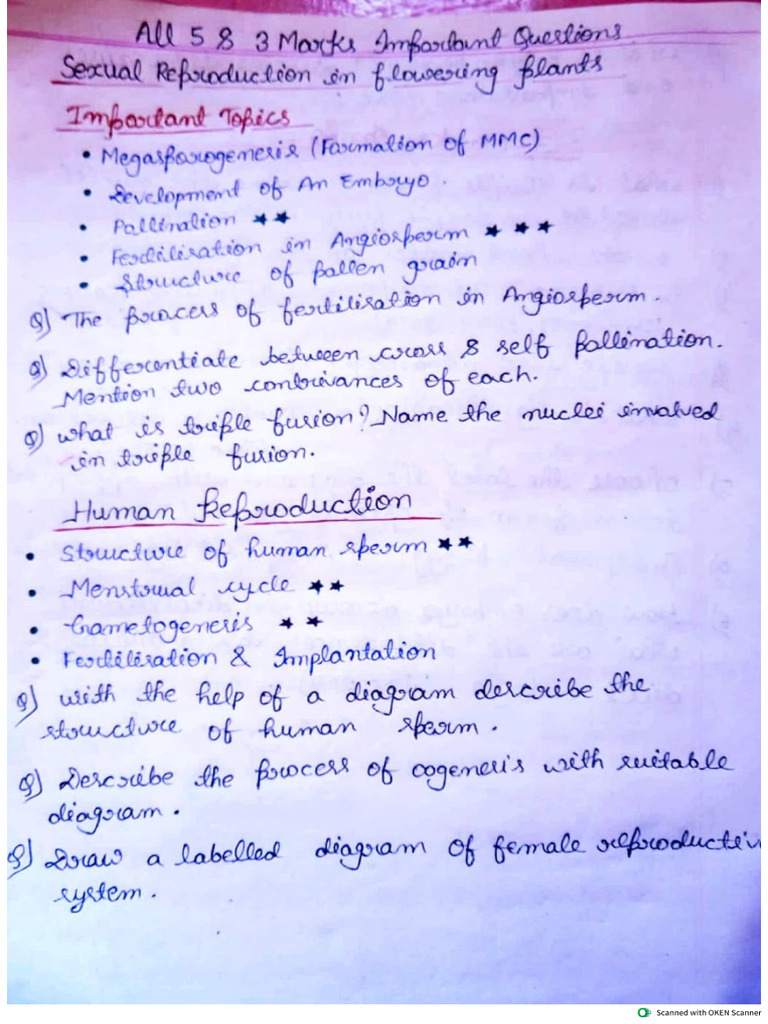 All 5 & 3 Marks Important Questions
Sexual Reproduction in flowering plants
Important Topics
• Megasporogenesis (Formation of MMC)
• Development of An Embryo.
• Pollination ★★
• Fertilisation in Angiosperm ★ ★ ★
• Structure of pollen grain
Q) The process of fertilisation in Angiosperm.
Q) Differentiate between cross & self pollination.
Mention two contrivances of each.
Q) what is triple fusion? Name the nuclei involved
in triple fusion.
Human Reproduction
• Structure of human sperm ★★
• Menstrual cycle ★★
• Gametogenesis ★ ★
• Fertilisation & Implantation
Q) with the help of a diagram describe the
structure of human sperm.
Q) Describe the process of oogenesis with suitable
diagram.
Q) Draw a labelled diagram of female reproductiv
system.
Scanned with OKEN Scanner